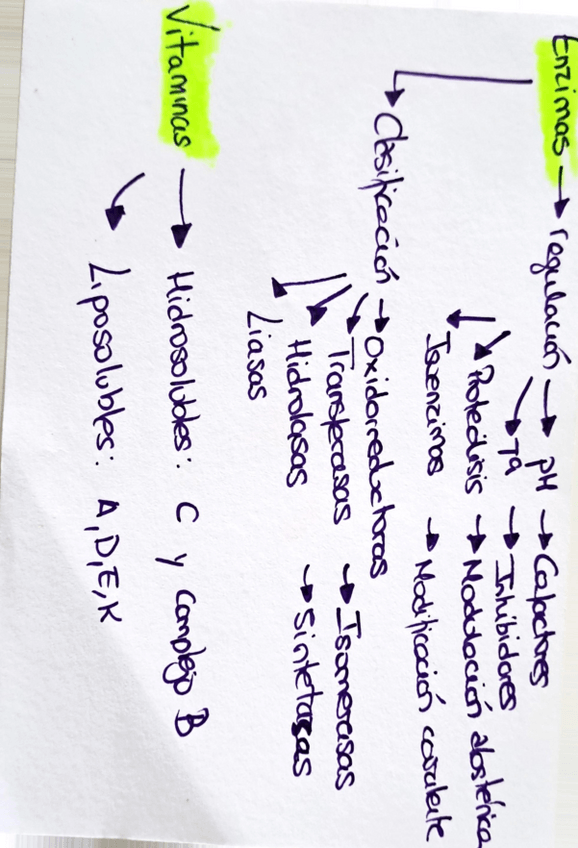 Enzimas → regulación → pH → Cofactores
Tª → Inhibidores
Proteólisis → Modulación alostérica
Isoenzimas → Modificación covalente
Clasificación → Oxidorreductoras
Transferasas → Isomerasas
Hidrolasas → Sintetasas
Liasas
Vitaminas → Hidrosolubles: C y Complejo B
Liposolubles: A, D, E, K